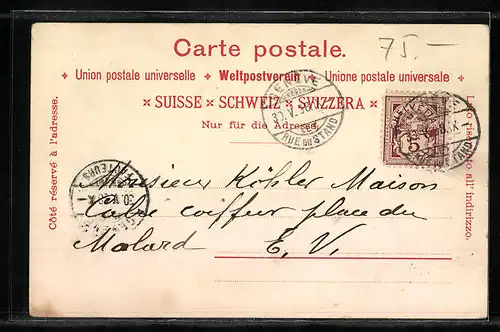 Carte postale.
75.—
Union postale universelle ✦ Weltpostverein ✦ Unione postale universale
× SUISSE × SCHWEIZ × SVIZZERA ×
Nur für die Adresse.
Côté réservé à l'adresse.
Lato riservato all' indirizzo.
GENÈVE
RUE DU STAND
5
RUE DU STAND
Monsieur Köhler Maison
coiffeur place du
Molard E. V.